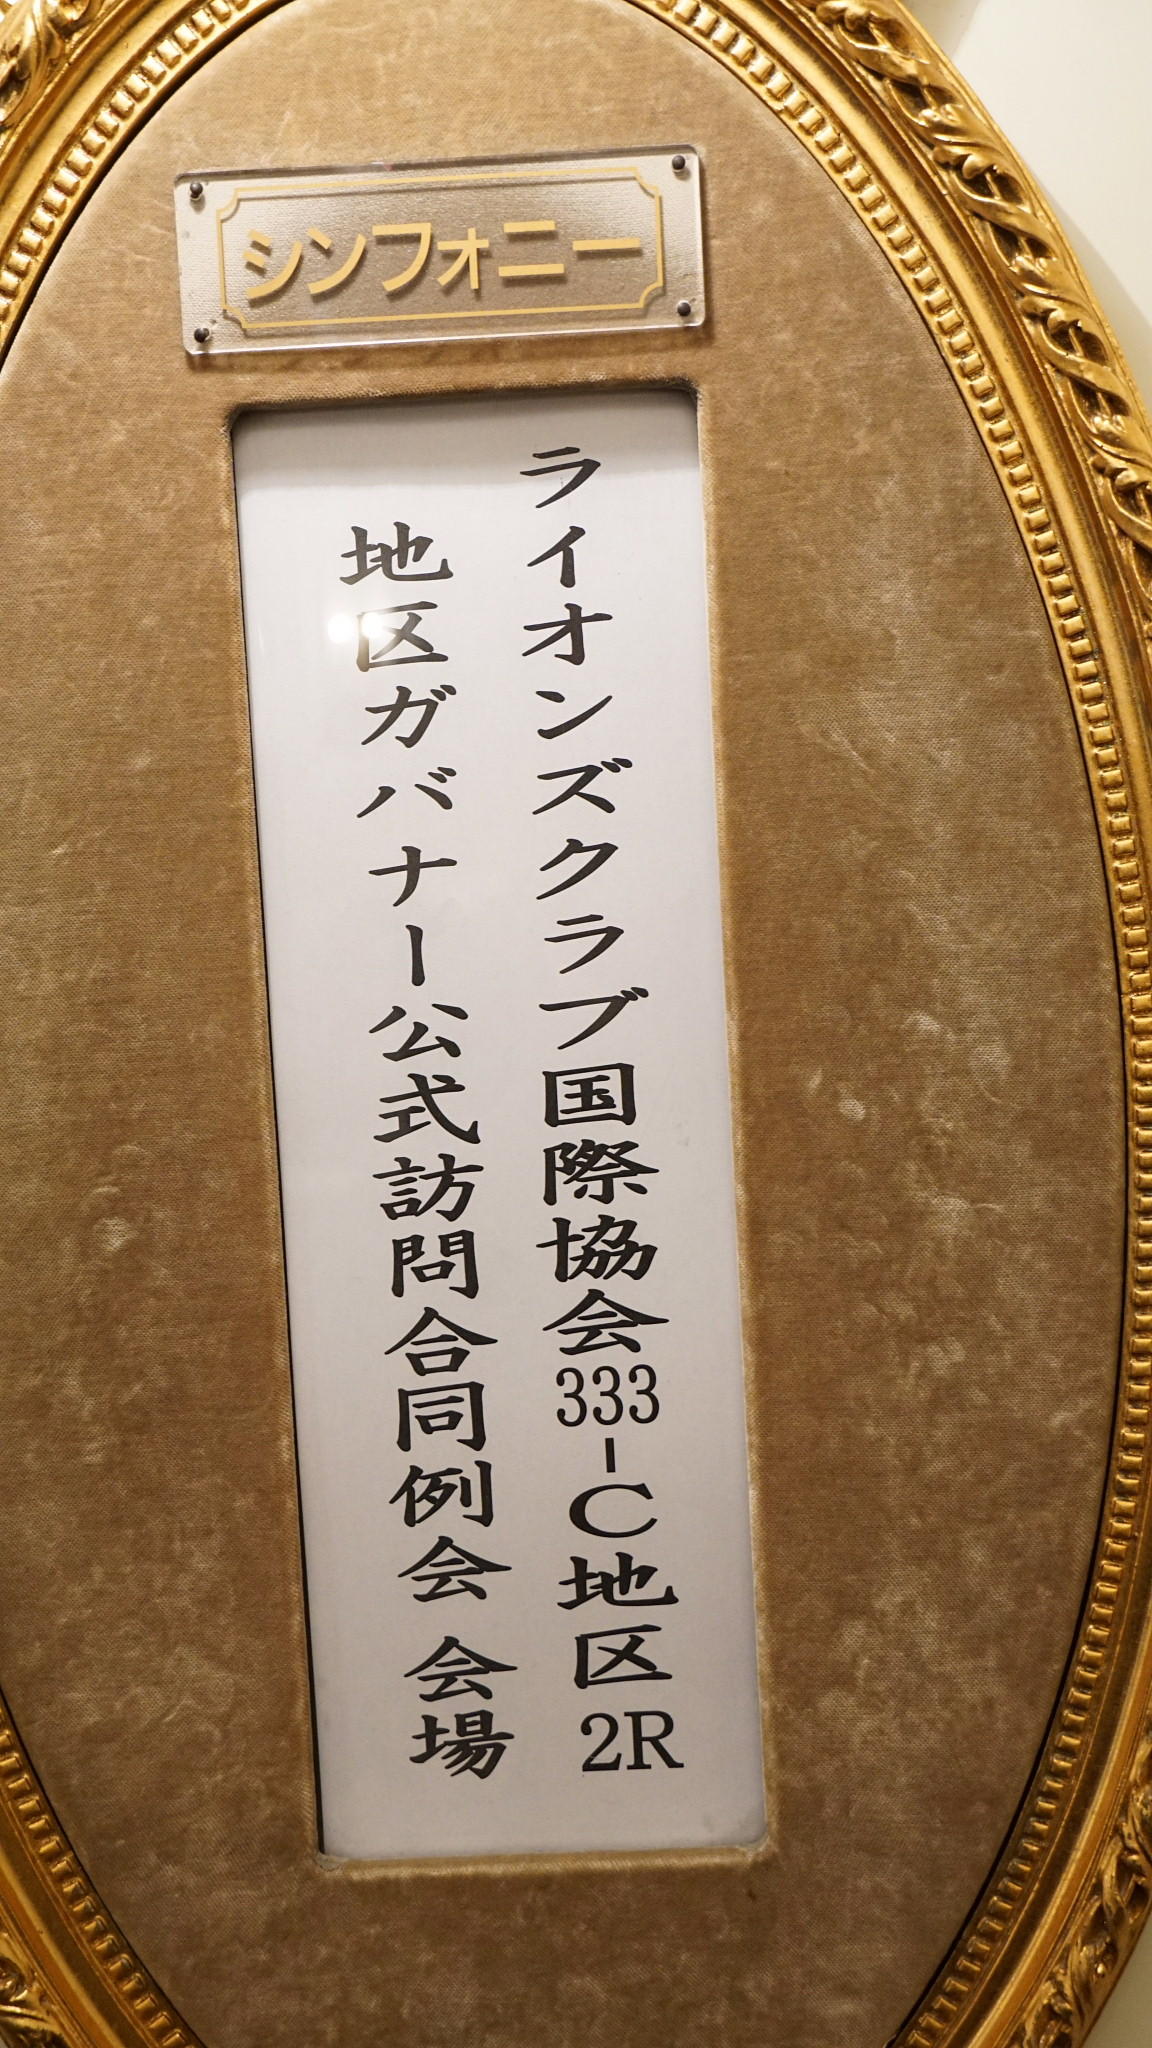 シンフォニー
ライオンズクラブ国際協会333-C地区 2R
地区ガバナー公式訪問合同例会 会場